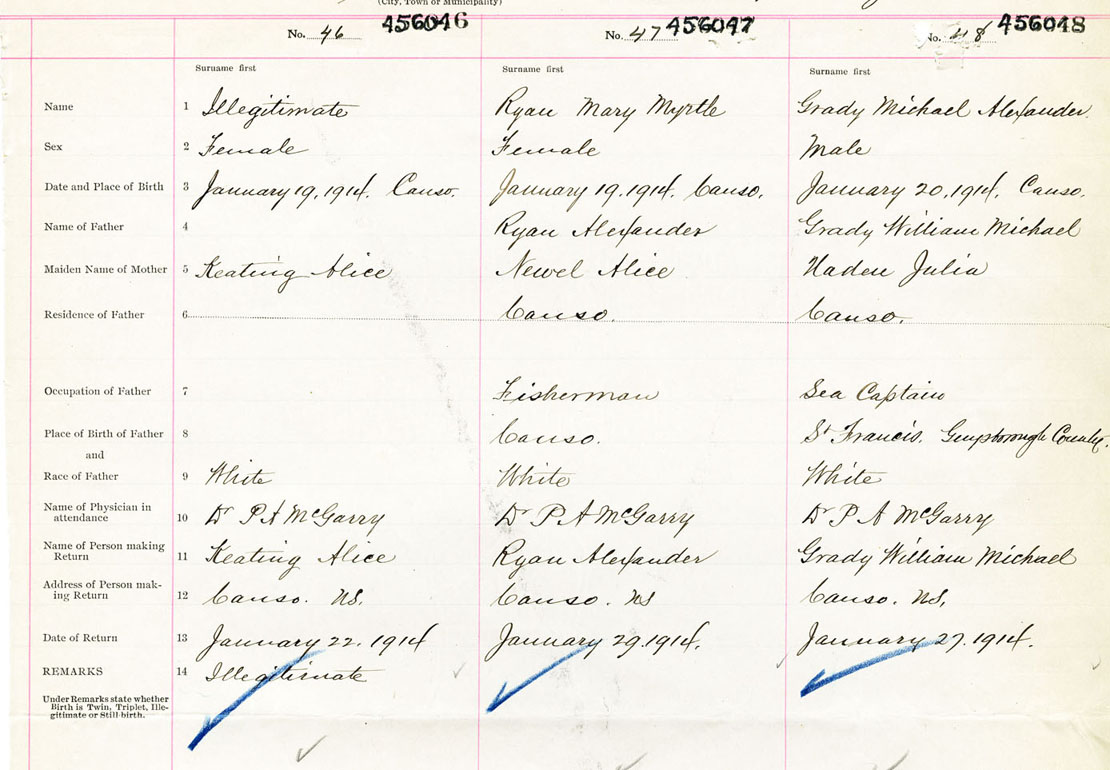 (City, Town or Municipality)
No. 46 456046 No. 47 456047 No. 48 456048
Surname first Surname first Surname first
Name 1 Illegitimate Ryan Mary Myrtle Grady Michael Alexander.
Sex 2 Female Female Male
Date and Place of Birth 3 January 19, 1914. Canso. January 19, 1914. Canso. January 20, 1914. Canso.
Name of Father 4 Ryan Alexander Grady William Michael
Maiden Name of Mother 5 Keating Alice Newel Alice Haden Julia
Residence of Father 6 Canso. Canso.
Occupation of Father 7 Fisherman Sea Captain
Place of Birth of Father 8 Canso. St Francis. Guysborough County.
and
Race of Father 9 White White White
Name of Physician in
attendance 10 Dr P A McGarry Dr P A McGarry Dr P A McGarry
Name of Person making
Return 11 Keating Alice Ryan Alexander Grady William Michael
Address of Person mak-
ing Return 12 Canso. NS. Canso. NS Canso. NS,
Date of Return 13 January 22. 1914 January 29. 1914. January 27. 1914.
REMARKS 14 Illegitimate
Under Remarks state whether
Birth is Twin, Triplet, Ille-
gitimate or Still-birth.